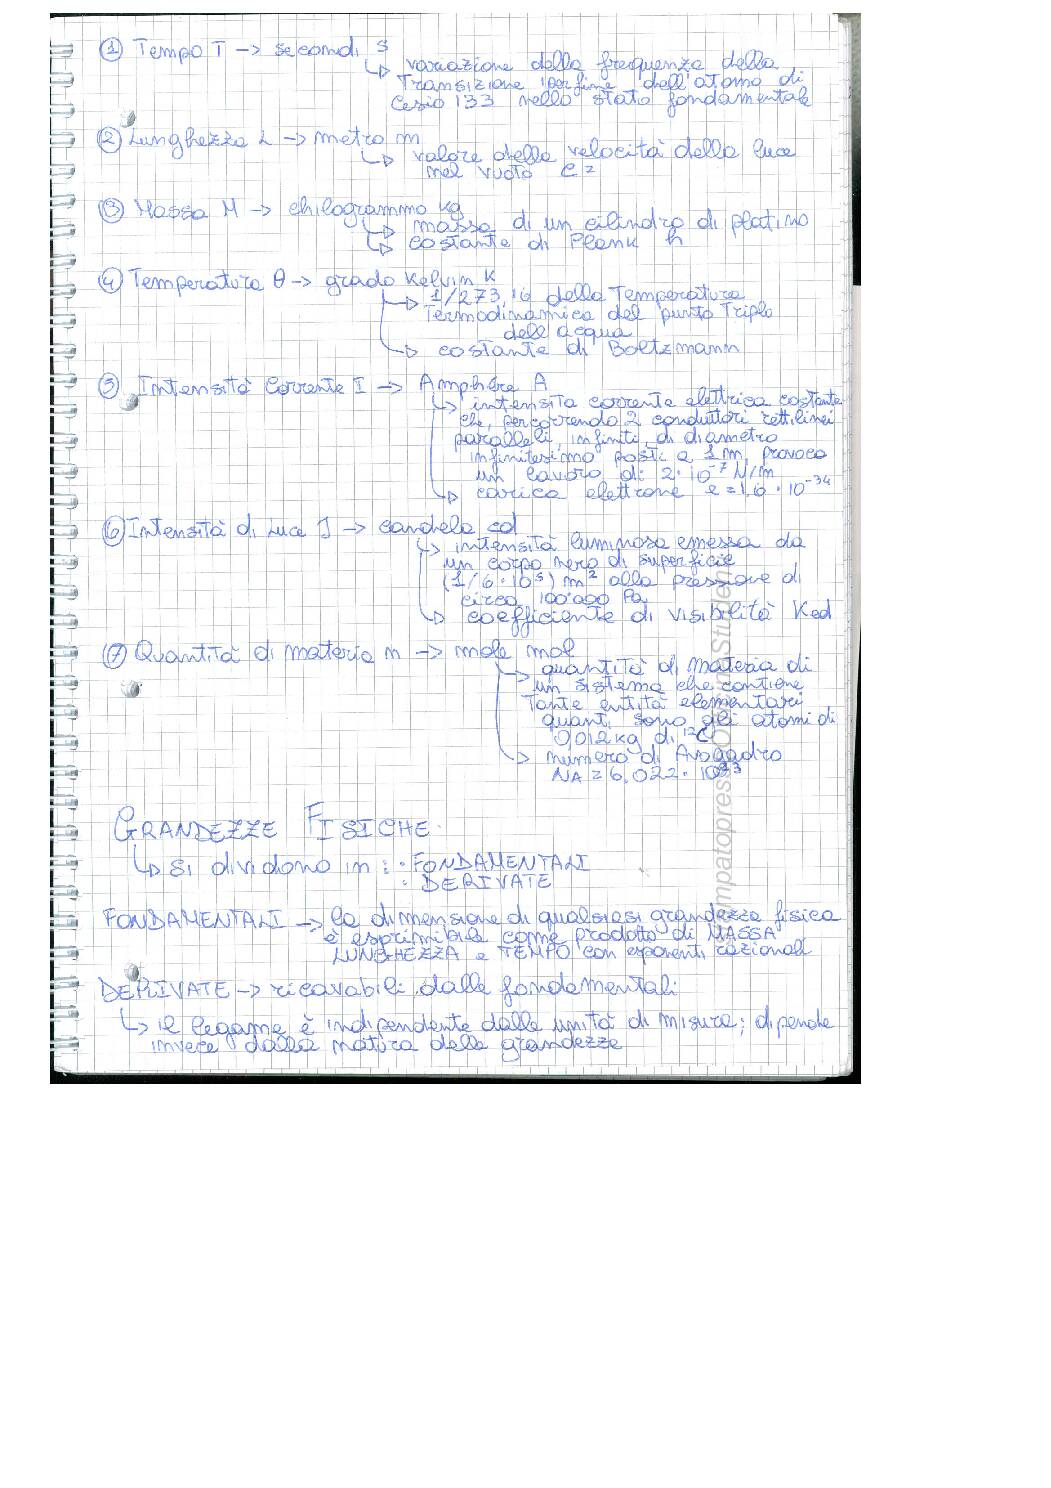 ① Tempo T → secondi s
↳ variazione della frequenza della
Transizione iperfine dell'atomo di
Cesio 133 nello stato fondamentale
② Lunghezza L → metro m
↳ valore della velocità della luce
nel vuoto c =
③ Massa M → chilogrammo kg
↳ massa di un cilindro di platino
↳ costante di Plank h
④ Temperatura θ → grado Kelvin K
↳ 1/273,16 della Temperatura
Termodinamica del punto Triplo
dell'acqua
↳ costante di Boltzmann
⑤ Intensità Corrente I → Amphère A
↳ intensità corrente elettrica costante
che, percorrendo 2 conduttori rettilinei
paralleli, infiniti, di diametro
infinitesimo posti a 1 m, provoca
un lavoro di: 2·10⁻⁷ N/m
↳ carica elettrone e = 1,6 · 10⁻³⁴
⑥ Intensità di Luce J → candela cd
↳ intensità luminosa emessa da
un corpo nero di superficie
(1/6·10⁵) m² alla pressione di
circa 100'000 Pa
↳ coefficiente di visibilità Kcd
⑦ Quantità di materia n → mole mol
↳ quantità di materia di
un sistema che contiene
tante entità elementari
quanti sono gli atomi di
0,012 kg di ¹²C
↳ numero di Avogadro
NA = 6,022 · 10²³
GRANDEZZE FISICHE
↳ si dividono in: · FONDAMENTALI
· DERIVATE
FONDAMENTALI → la dimensione di qualsiasi grandezza fisica
è esprimibile come prodotto di MASSA
LUNGHEZZA e TEMPO con esponenti razionali
DERIVATE → ricavabili dalle fondamentali
↳ il legame è indipendente dalle unità di misura; dipende
invece dalla natura delle grandezze